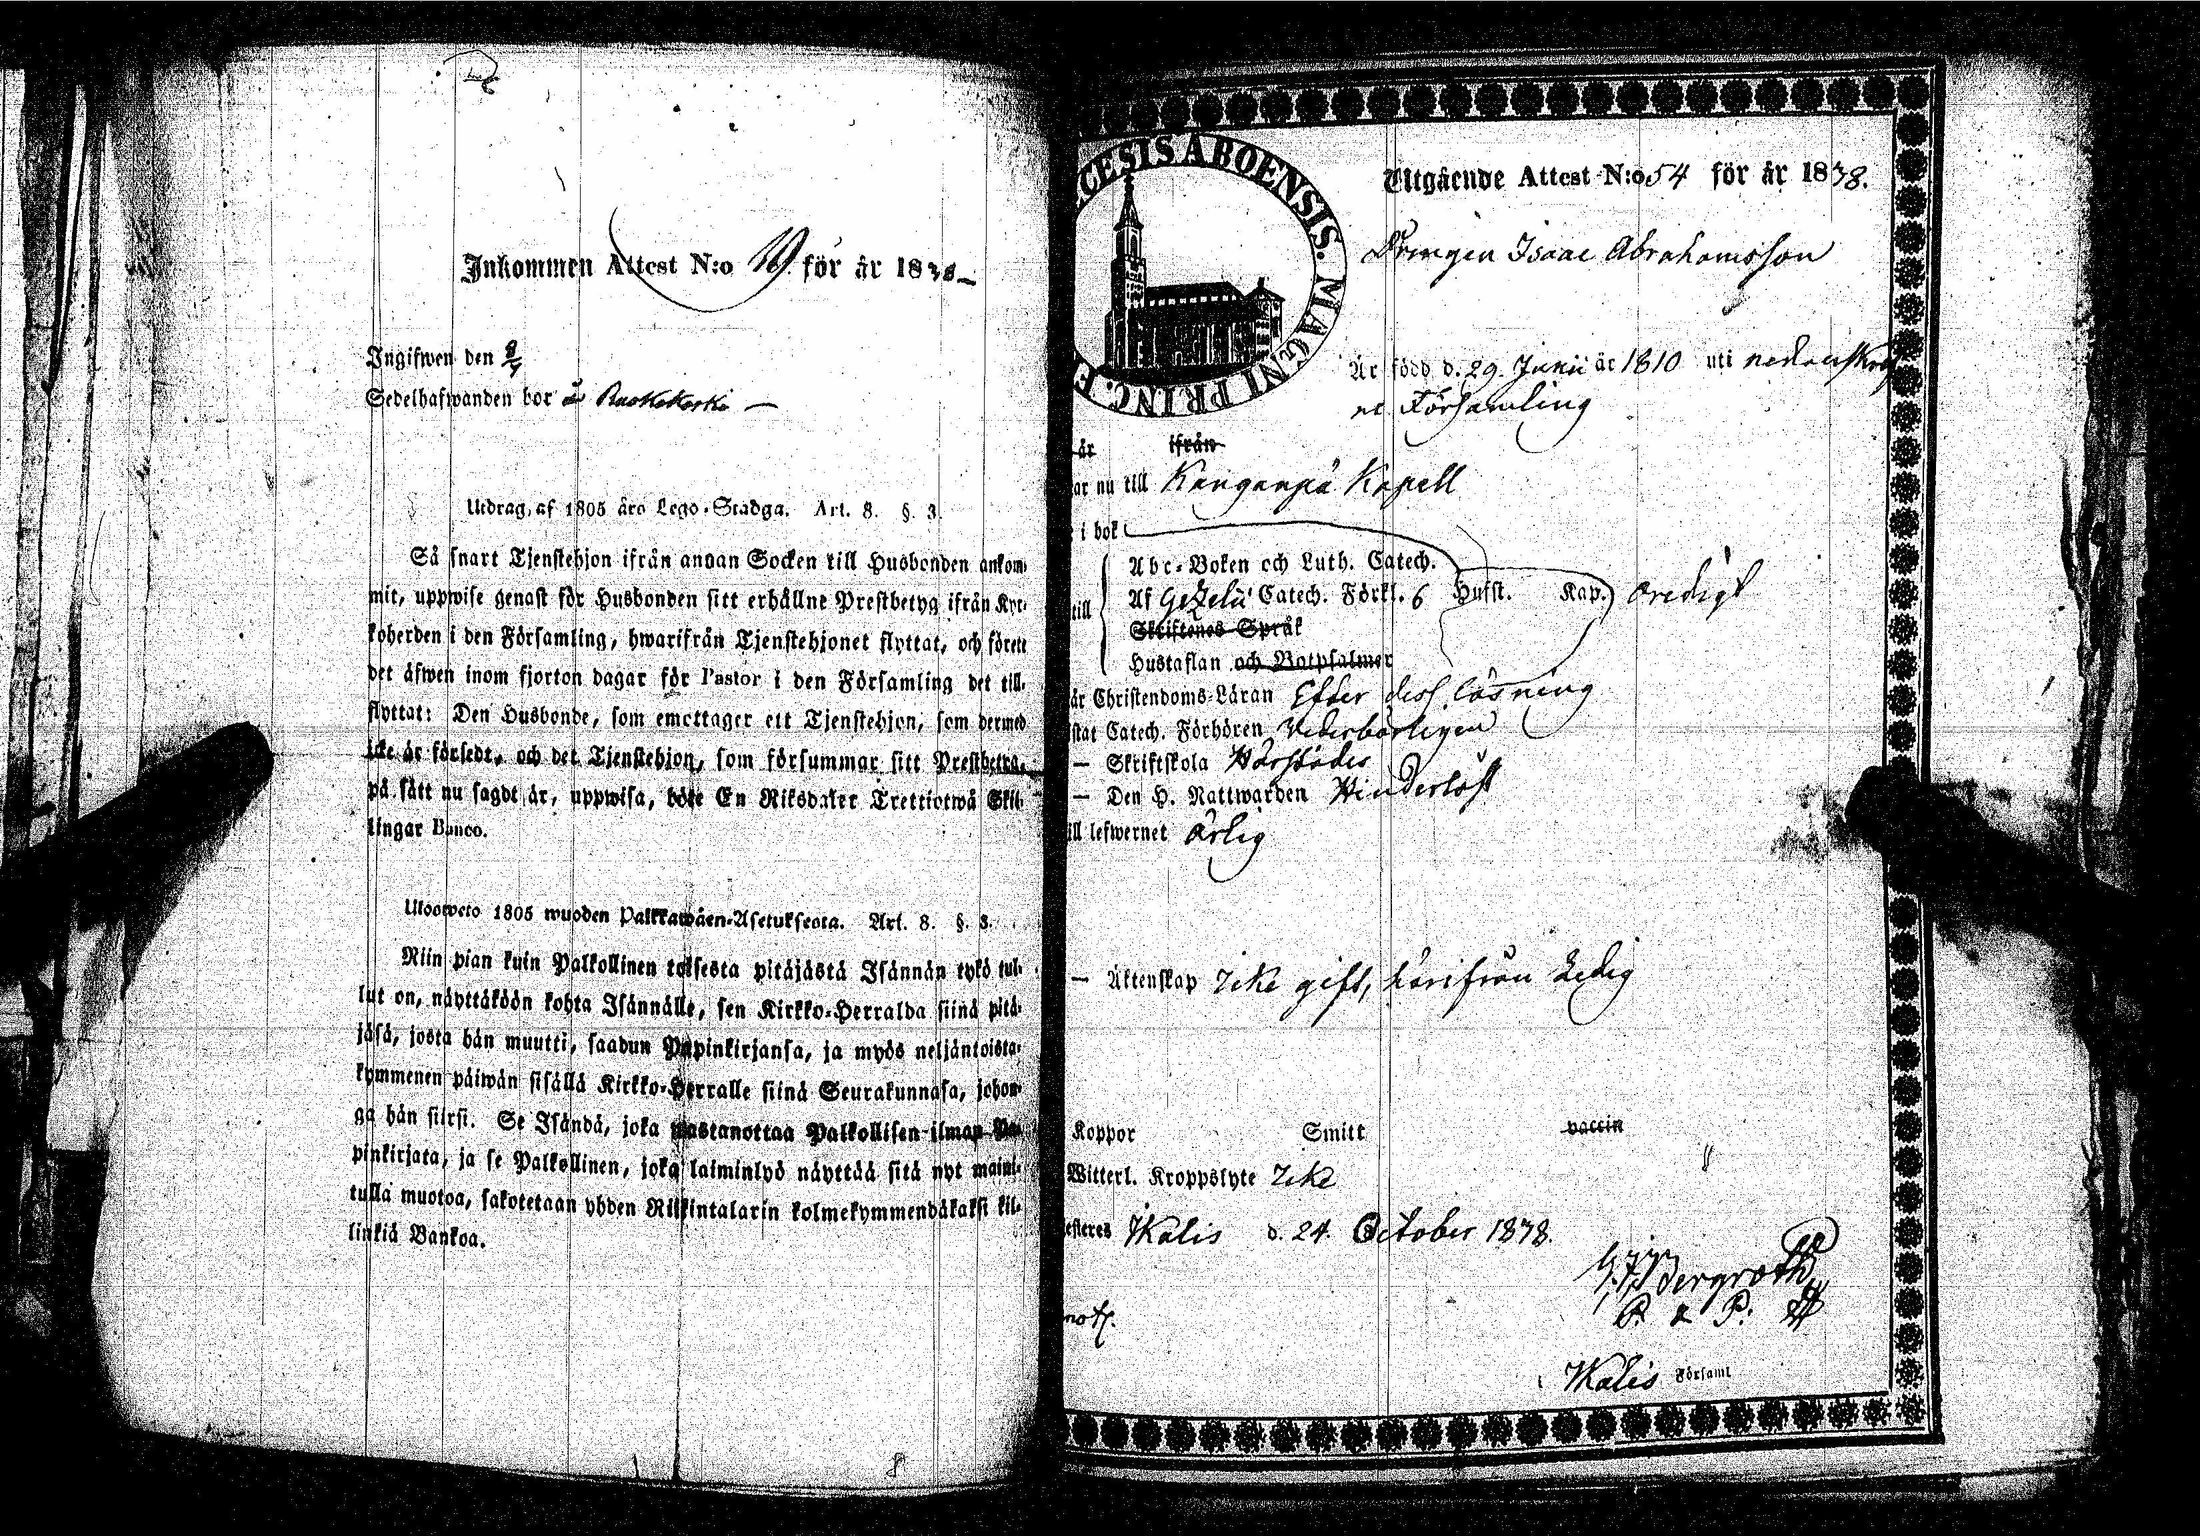 Inkommen Attest N:o 19. för år 1838
Ingifwen den
Sedelhafwanden bor å
Utdrag af 1805 års Lego-Stadga. Art. 8. §. 3.
Så snart Tjenstehjon ifrån annan Socken till Husbonden ankom-
mit, uppwise genast för Husbonden sitt erhållne Prestbetyg ifrån Kyr-
koherden i den Församling, hwarifrån Tjenstehjonet flyttat, och förete
det äfwen inom fjorton dagar för Pastor i den Församling det till-
flyttat: Den Husbonde, som emottager ett Tjenstehjon, som dermed
icke är försedt, och det Tjenstehjon, som försummar sitt Prestbetyg,
på sätt nu sagdt är, uppwisa, böte En Riksdaler Trettiotwå Skil-
lingar Banco.
Ulosweto 1805 wuoden Palkkawäen-Asetuksesta. Art. 8. §. 3.
Niin pian kuin Palkollinen toisesta pitäjästä Isännän tykö tul-
lut on, näyttäköön kohta Isännälle, sen Kirkko-Herralda siinä pitä-
jäsä, josta hän muutti, saadun Papinkirjansa, ja myös neljäntoista-
kymmenen päiwän sisällä Kirkko-Herralle siinä Seurakunnasa, johon-
ga hän siirsi. Se Isändä, joka wastanottaa Palkollisen ilman Pa-
pinkirjata, ja se Palkollinen, joka laiminlyö näyttää sitä nyt maini-
tulla muotoa, sakotetaan yhden Riikintalarin kolmekymmendäkaksi kil-
linkiä Bankoa.
CESIS ABOENSIS. MAGNI PRINC. F
Utgående Attest N:o 54 för år 1838.
Drengen Isaac Abrahamsson
Är född d. 29. Junii år 1810 uti nedanskref
ne Församling
är ifrån
ar nu till Kanganpä Kapell
i bok
Abc-Boken och Luth. Catech.
till Af Gezelii Catech. Förkl. 6 Hufst. Kap. oredigt
Skriftenes Språk
Hustaflan och Botpsalmer
är Christendoms-Läran Efter dess läsning
stat Catech. Förhören Vederbörligen
— Skriftskola Härstädes
— Den H. Nattwarden Hinderlöst
ill lefwernet ärlig
— Äktenskap Icke gift, härifrån Ledig
Koppor Smitt vaccin
Witterl. Kroppslyte Icke
esteres Ikalis d. 24. October 1838.
Bergroth
P.
not.
Ikalis Församl